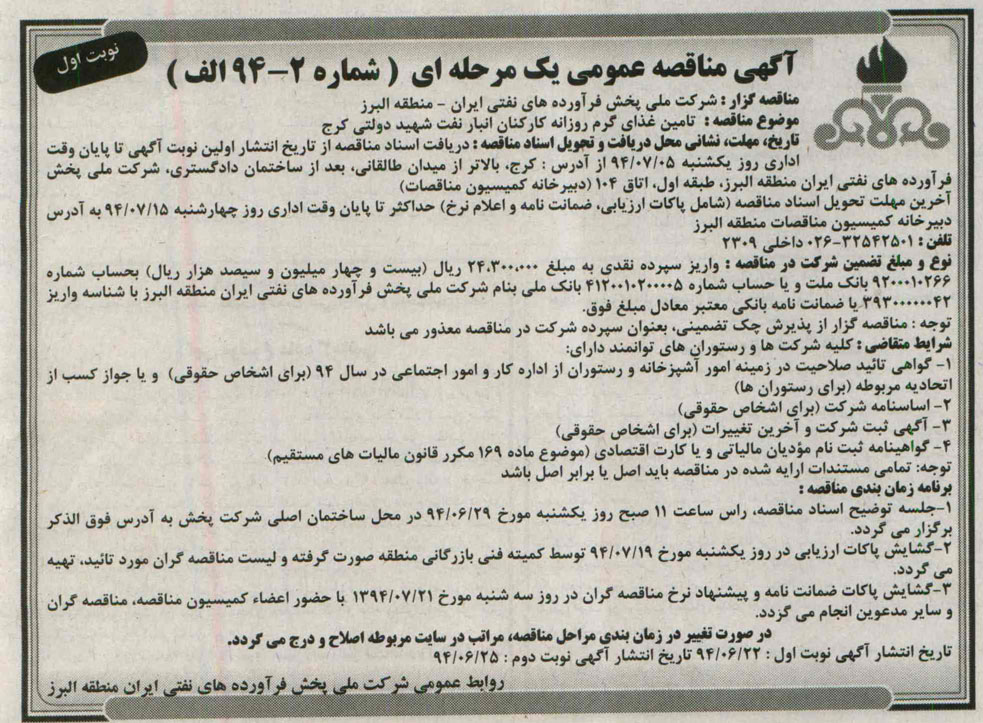 نوبت اول
آگهی مناقصه عمومی یک مرحله ای ( شماره ۲-۹۴ الف )
مناقصه گزار : شرکت ملی پخش فرآورده های نفتی ایران - منطقه البرز
موضوع مناقصه : تامین غذای گرم روزانه کارکنان انبار نفت شهید دولتی کرج
تاریخ، مهلت، نشانی محل دریافت و تحویل اسناد مناقصه : دریافت اسناد مناقصه از تاریخ انتشار اولین نوبت آگهی تا پایان وقت
اداری روز یکشنبه ۹۴/۰۷/۰۵ از آدرس : کرج، بالاتر از میدان طالقانی، بعد از ساختمان دادگستری، شرکت ملی پخش
فرآورده های نفتی ایران منطقه البرز، طبقه اول، اتاق ۱۰۴ (دبیرخانه کمیسیون مناقصات)
آخرین مهلت تحویل اسناد مناقصه (شامل پاکات ارزیابی، ضمانت نامه و اعلام نرخ) حداکثر تا پایان وقت اداری روز چهارشنبه ۹۴/۰۷/۱۵ به آدرس
دبیرخانه کمیسیون مناقصات منطقه البرز
تلفن : ۳۲۵۴۲۵۰۱-۰۲۶ داخلی ۲۳۰۹
نوع و مبلغ تضمین شرکت در مناقصه : واریز سپرده نقدی به مبلغ ۲۴،۳۰۰،۰۰۰ ریال (بیست و چهار میلیون و سیصد هزار ریال) بحساب شماره
۹۲۰۰۰۱۰۲۶۶ بانک ملت و یا حساب شماره ۴۱۲۰۰۱۰۲۰۰۰۰۵ بانک ملی بنام شرکت ملی پخش فرآورده های نفتی ایران منطقه البرز با شناسه واریز
۳۹۳۰۰۰۰۰۰۴۲ یا ضمانت نامه بانکی معتبر معادل مبلغ فوق.
توجه : مناقصه گزار از پذیرش چک تضمینی، بعنوان سپرده شرکت در مناقصه معذور می باشد
شرایط متقاضی : کلیه شرکت ها و رستوران های توانمند دارای:
۱- گواهی تائید صلاحیت در زمینه امور آشپزخانه و رستوران از اداره کار و امور اجتماعی در سال ۹۴ (برای اشخاص حقوقی) و یا جواز کسب از
اتحادیه مربوطه (برای رستوران ها)
۲- اساسنامه شرکت (برای اشخاص حقوقی)
۳- آگهی ثبت شرکت و آخرین تغییرات (برای اشخاص حقوقی)
۴- گواهینامه ثبت نام مؤدیان مالیاتی و یا کارت اقتصادی (موضوع ماده ۱۶۹ مکرر قانون مالیات های مستقیم)
توجه: تمامی مستندات ارایه شده در مناقصه باید اصل یا برابر اصل باشد
برنامه زمان بندی مناقصه :
۱-جلسه توضیح اسناد مناقصه، راس ساعت ۱۱ صبح روز یکشنبه مورخ ۹۴/۰۶/۲۹ در محل ساختمان اصلی شرکت پخش به آدرس فوق الذکر
برگزار می گردد.
۲-گشایش پاکات ارزیابی در روز یکشنبه مورخ ۹۴/۰۷/۱۹ توسط کمیته فنی بازرگانی منطقه صورت گرفته و لیست مناقصه گران مورد تائید، تهیه
می گردد.
۳-گشایش پاکات ضمانت نامه و پیشنهاد نرخ مناقصه گران در روز سه شنبه مورخ ۱۳۹۴/۰۷/۲۱ با حضور اعضاء کمیسیون مناقصه، مناقصه گران
و سایر مدعوین انجام می گردد.
در صورت تغییر در زمان بندی مراحل مناقصه، مراتب در سایت مربوطه اصلاح و درج می گردد.
تاریخ انتشار آگهی نوبت اول : ۹۴/۰۶/۲۲ تاریخ انتشار آگهی نوبت دوم : ۹۴/۰۶/۲۵
روابط عمومی شرکت ملی پخش فرآورده های نفتی ایران منطقه البرز